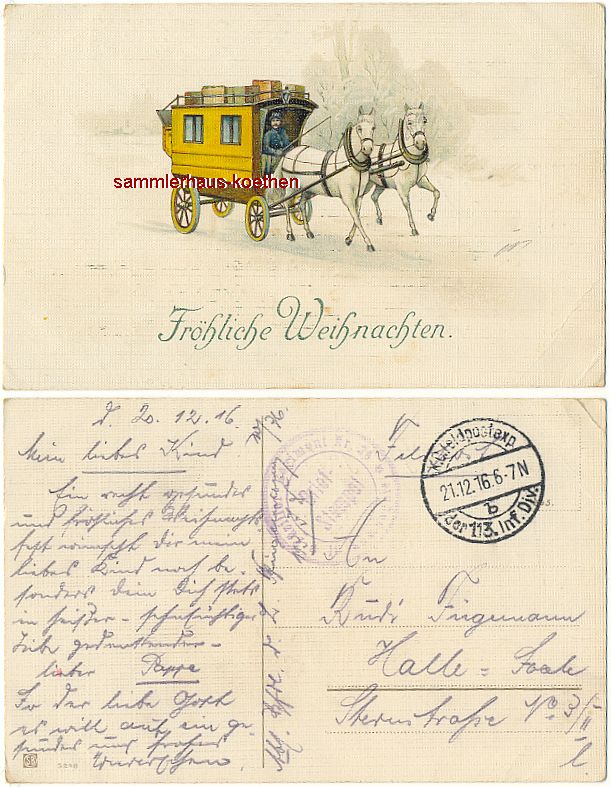 sammlerhaus-koethen
Fröhliche Weihnachten.
d. 20.12.16.
Mein liebes Kind
Ein recht gesundes
und fröhliches Weihnachts
fest wünscht dir mein
liebes Kind noch be-
sonders dein Dich stets
in heißer - sehnsüchtiger
Liebe gedenkender -
lieber Pappa
So der liebe Gott
es will auf ein ge-
sundes und frohes
Wiedersehen.
5208
K.D. Feldpostexp.
21.12.16. 6-7N
b
der 113. Inf. Div.
An
Rudi
Halle = Saale
Sternstraße No 3/II
l.